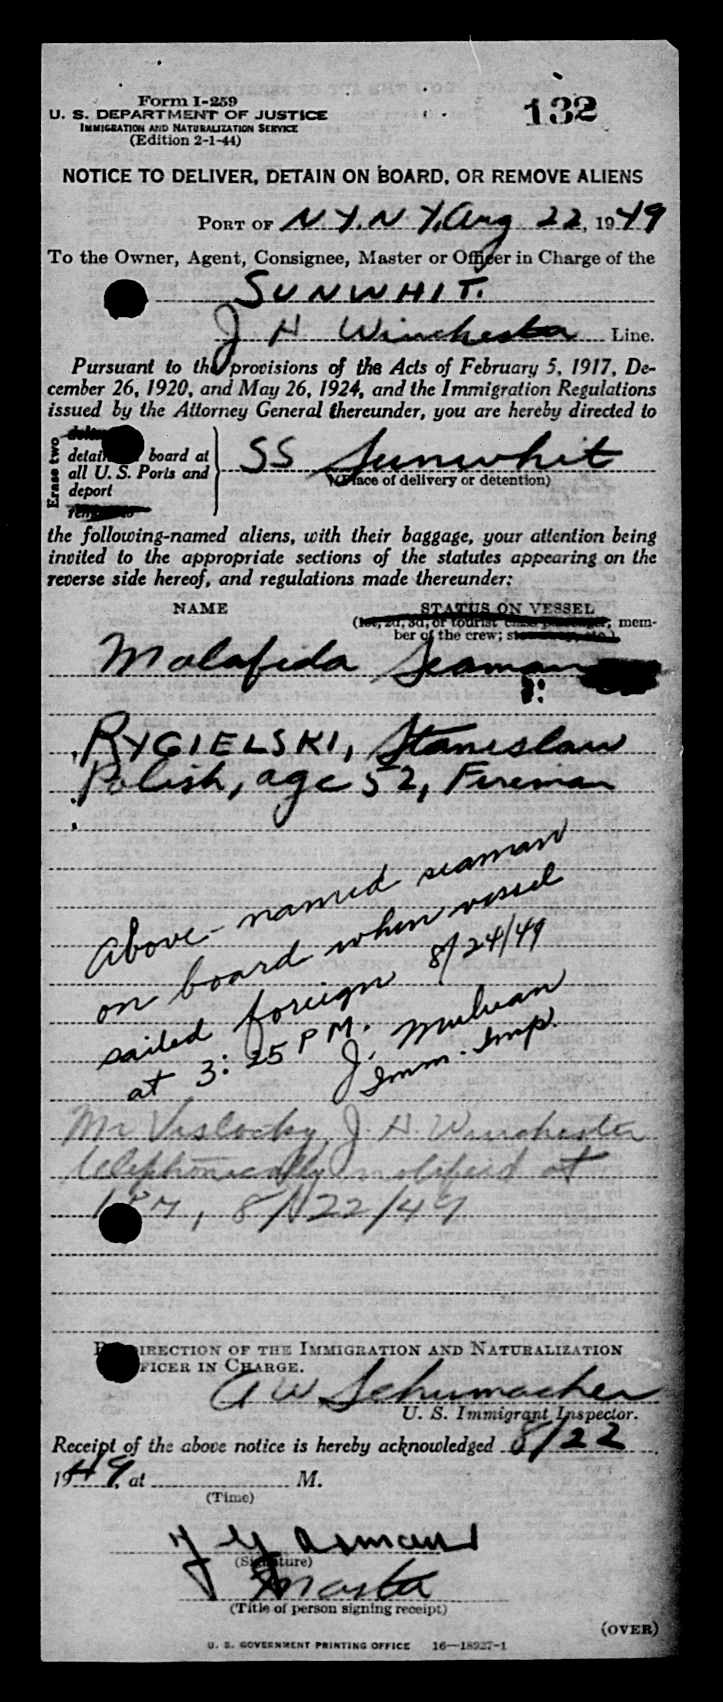 Form I-259
132
U. S. DEPARTMENT OF JUSTICE
IMMIGRATION AND NATURALIZATION SERVICE
(Edition 2-1-44)
NOTICE TO DELIVER, DETAIN ON BOARD, OR REMOVE ALIENS
PORT OF N.Y. N.Y. Aug 22, 1949
To the Owner, Agent, Consignee, Master or Officer in Charge of the
SUNWHIT.
J H Winchester Line.
Pursuant to the provisions of the Acts of February 5, 1917, De-
cember 26, 1920, and May 26, 1924, and the Immigration Regulations
issued by the Attorney General thereunder, you are hereby directed to
Erase two
detain board at
all U. S. Ports and
deport
SS Sunwhit
(Place of delivery or detention)
the following-named aliens, with their baggage, your attention being
invited to the appropriate sections of the statutes appearing on the
reverse side hereof, and regulations made thereunder:
NAME STATUS ON VESSEL
(1st, 2d, 3d, or tourist class passenger; mem-
ber of the crew;
Malafida Seaman
RYGIELSKI, Stanislaw
Polish, age 52, Fireman
Above-named seaman
on board when vessel
sailed foreign 8/24/49
at 3:25 PM. J.
Imm. Insp.
Mr Vislocky, J. H. Winchester
telephonically notified at
8/22/49
DIRECTION OF THE IMMIGRATION AND NATURALIZATION
FICER IN CHARGE.
A W Schumacher
U. S. Immigrant Inspector.
Receipt of the above notice is hereby acknowledged 8/22
1949, at M.
(Time)
(Signature)
Master
(Title of person signing receipt)
(OVER)
U. S. GOVERNMENT PRINTING OFFICE 16—18927-1